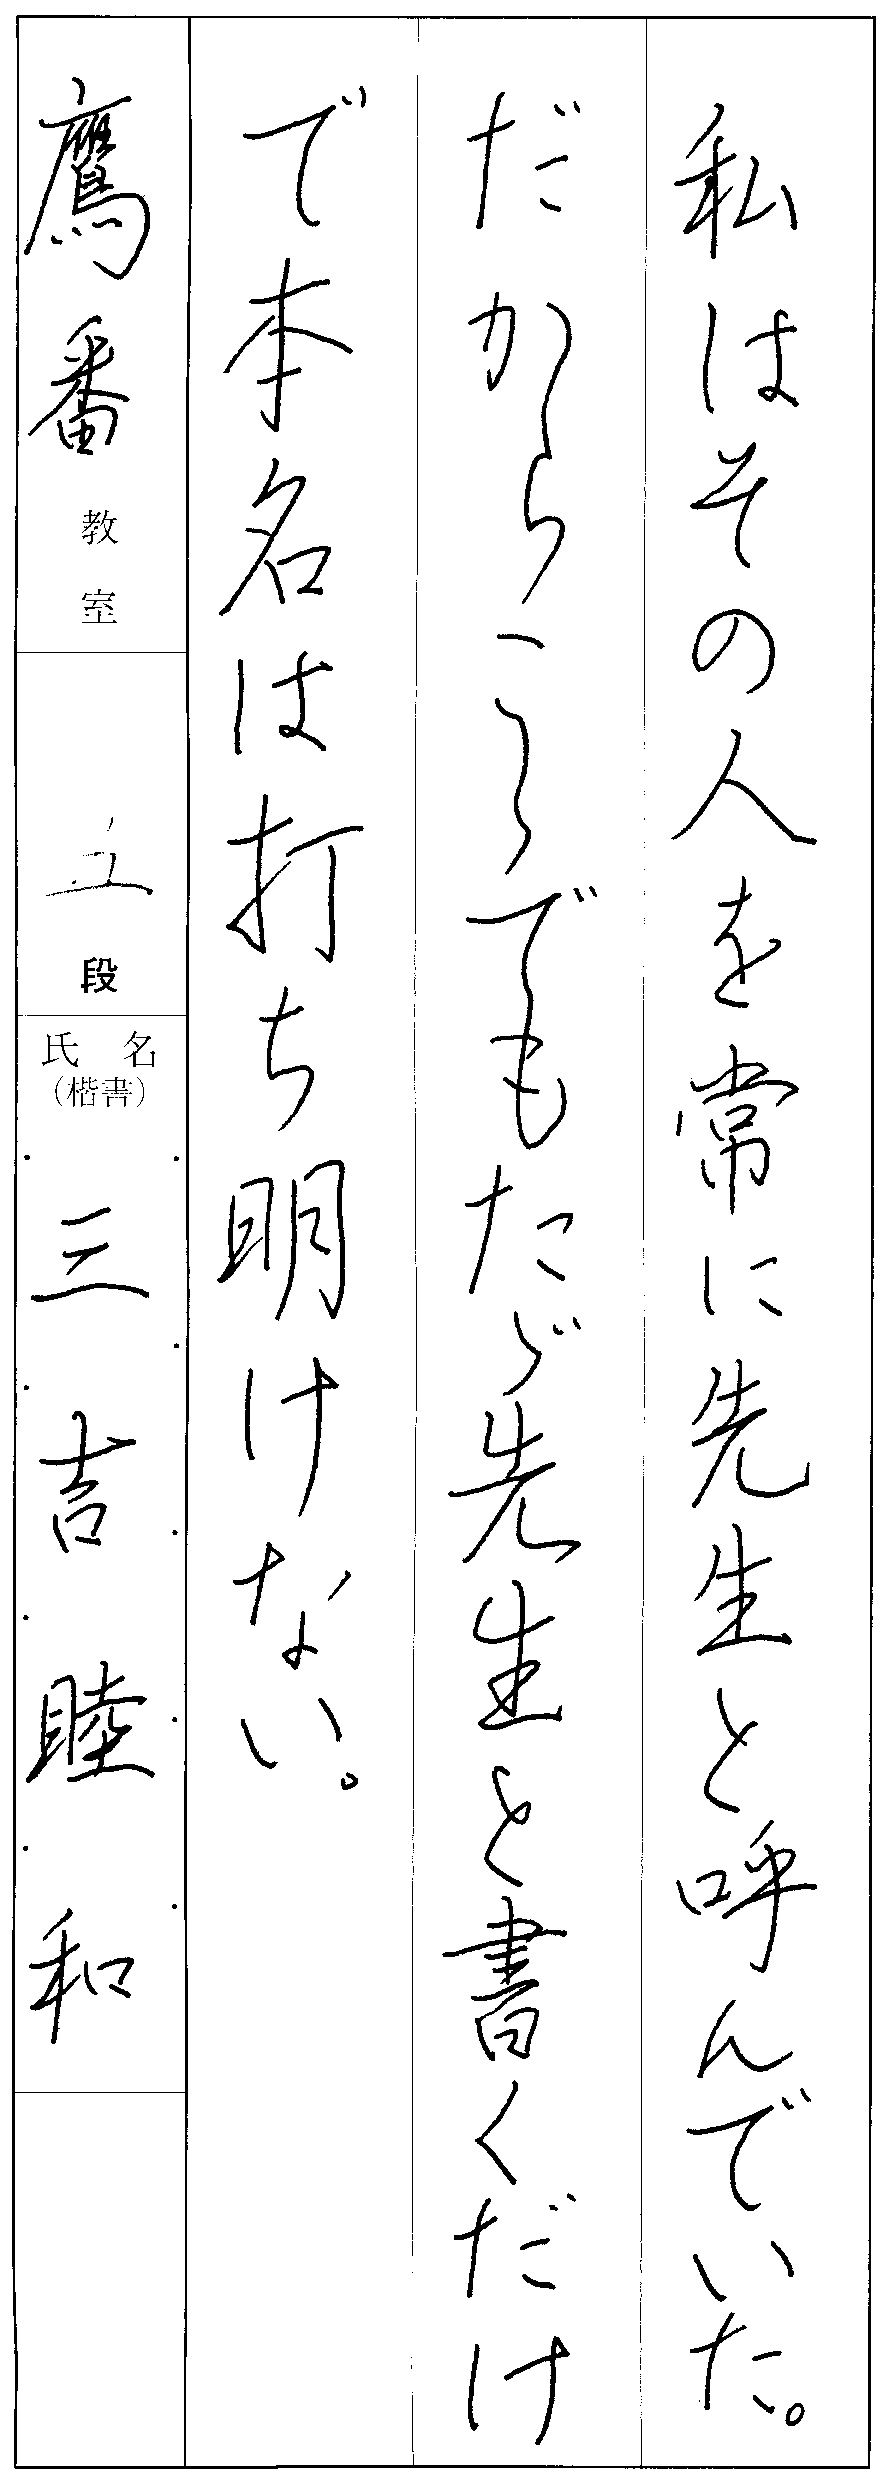 私はその人を常に先生と呼んでいた。
だからここでもたゞ先生と書くだけ
で本名は打ち明けない。
鷹番教室
段
氏名
(楷書)
三吉睦和